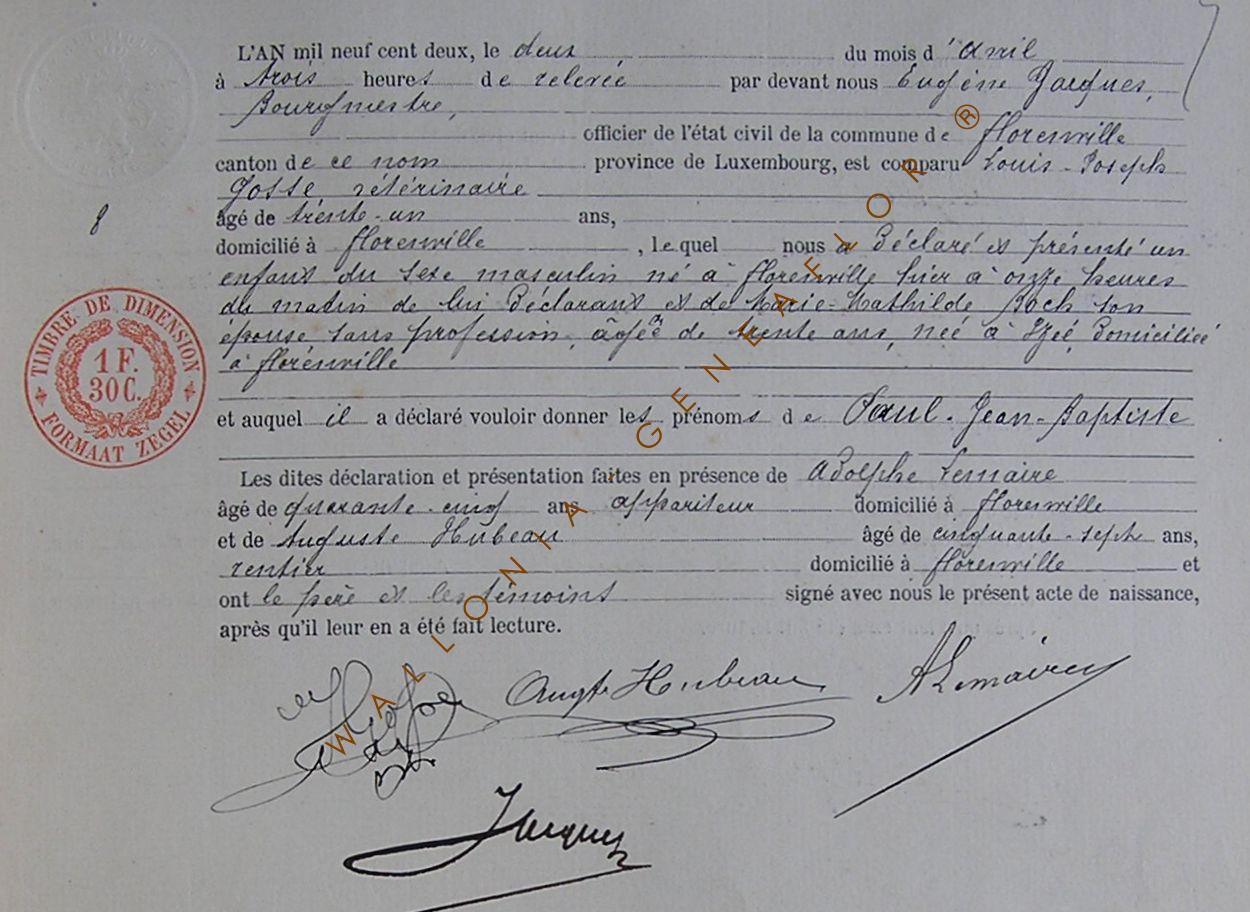 L'AN mil neuf cent deux, le deux du mois d'avril
à trois heures de relevée par devant nous Eugène Jacques,
Bourgmestre,
officier de l'état civil de la commune de Florenville
canton de ce nom province de Luxembourg, est comparu Louis-Joseph
Gosse, vétérinaire
âgé de trente-un ans,
8
domicilié à Florenville, lequel nous a Déclaré et présenté un
enfant du sexe masculin né à Florenville hier à onze heures
du matin de lui Déclarant et de Marie-Mathilde, Boch son
épouse, sans profession, âgée de trente ans, née à Izel, Domiciliée
à Florenville
TIMBRE DE DIMENSION
1 F.
30 C.
FORMAAT ZEGEL
et auquel il a déclaré vouloir donner les prénoms de Paul-Jean-Baptiste
Les dites déclaration et présentation faites en présence de Adolphe Lemaire
âgé de quarante-cinq ans appariteur domicilié à Florenville
et de Auguste Hubeau âgé de cinquante-sept ans,
rentier domicilié à Florenville et
ont le père et les témoins signé avec nous le présent acte de naissance,
après qu'il leur en a été fait lecture.
Augte Hubeau ALemaire
Jacques
WALLONIA-GENEAFLOR®